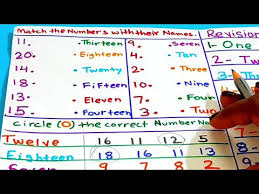 Match the Numbers with their Names. Revision
11. Thirteen 9. Seven 1- One
20. Eighteen 4. Ten 2- Tw
14. Twenty 2. Three 3-
18 Fifteen 10 Nine
13. Eleven 7. Four
15. Fourteen 3. Two
Circle (O) the correct Number Na
Twelve 16 11 12 5
Eighteen 18 16 11 13
Seven 9 7 8 2